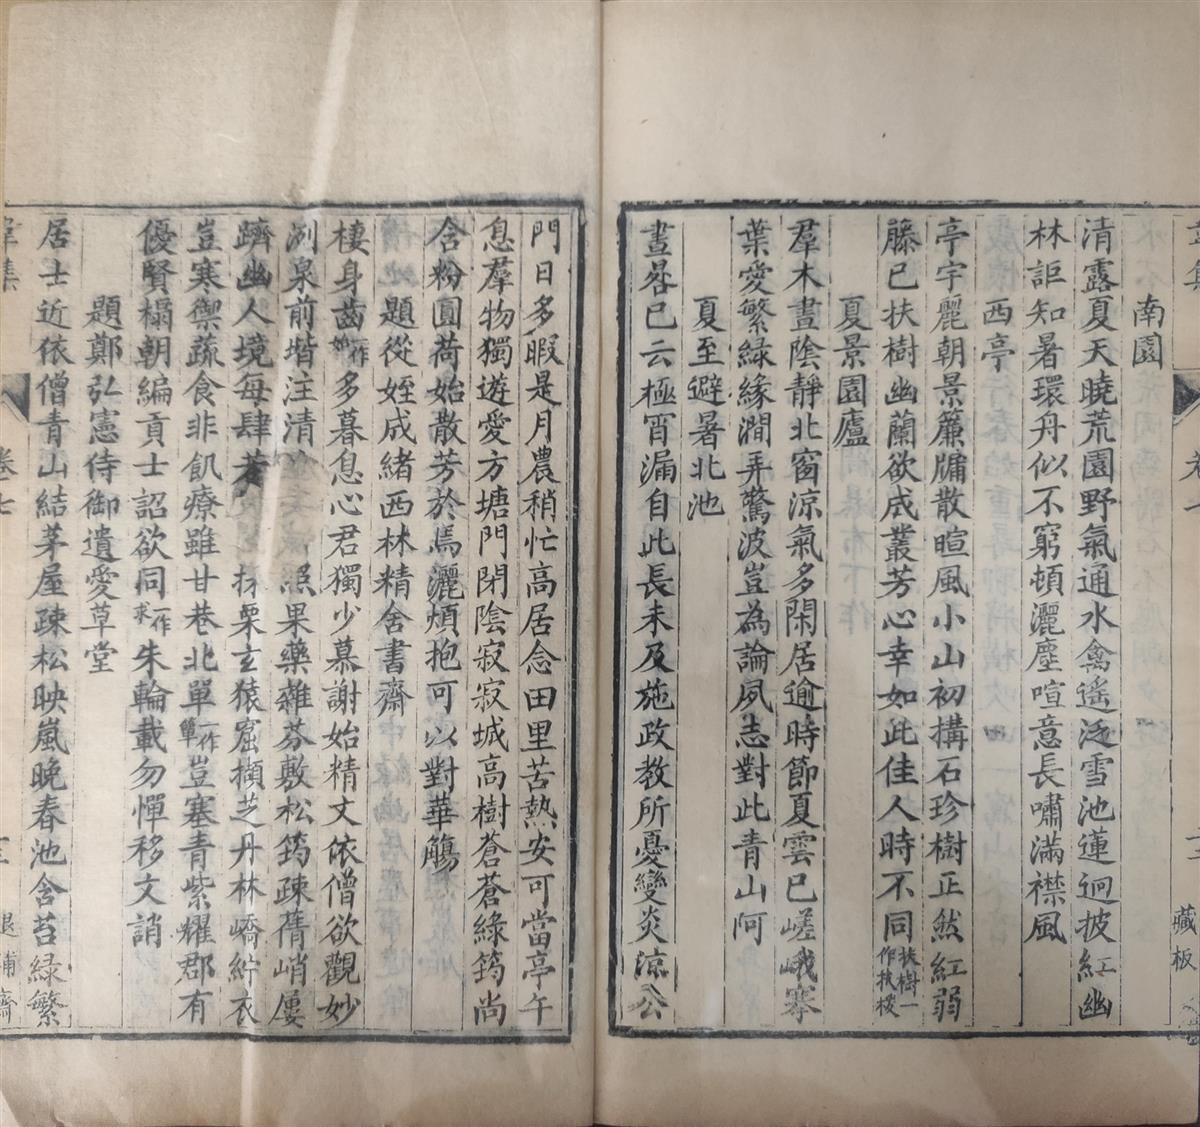 南園
清露夏天曉荒園野氣通水禽遙泛雪池蓮迥披紅幽
林詎知暑環舟似不窮頓灑塵喧意長嘯滿襟風
西亭
亭宇麗朝景簾牖散暄風小山初搆石珍樹正然紅弱
藤已扶樹幽蘭欲成叢芳心幸如此佳人時不同扶樹一作扶援
夏景園廬
羣木晝陰靜北窗涼氣多閑居逾時節夏雲已嵯峨搴
葉愛繁綠緣澗弄驚波豈為論夙志對此青山阿
夏至避暑北池
晝晷已云極宵漏自此長未及施政教所憂變炎涼公
門日多暇是月農稍忙高居念田里苦熱安可當亭午
息羣物獨遊愛方塘門閉陰寂寂城高樹蒼蒼綠筠尚
含粉圓荷始散芳於焉灑煩抱可以對華觴
題從姪成緒西林精舍書齋
棲身齒一作妙多暮息心君獨少慕謝始精文依僧欲觀妙
洌泉前堦注清照果藥雜芬敷松筠疎蒨峭屢
躋幽人境每肆採栗玄猿窟擷芝丹林嶠紵衣
豈寒禦蔬食非飢療雖甘巷北單一作簞豈塞青紫耀郡有
優賢榻朝編貢士詔欲同一作求朱輪載勿憚移文誚
題鄭弘憲侍御遺愛草堂
居士近依僧青山結茅屋疎松映嵐晚春池含苔綠繁
韋集
卷七
退補齋
藏板